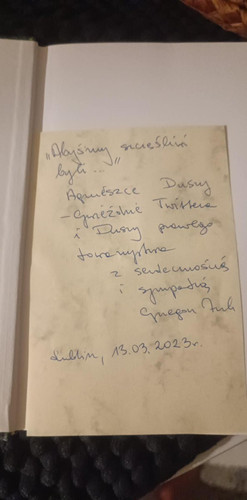 „Abyśmy szczęśliwi
byli ...”
Agnieszce Duszy
– Gwieździe Twittera
i Duszy prawego
towarzystwa
z serdecznością
i sympatią
Grzegorz
Lublin, 13.03.2023r.